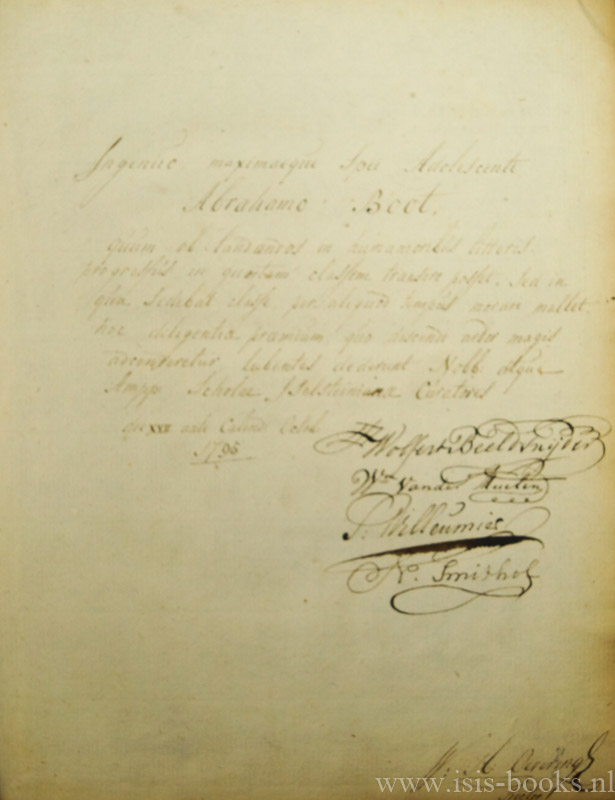 Ingenuo maximaeque Spei Adolescenti
Abrahamo Boot,
quum ob laudandos in humanioribus litteris
progressus in quartam classem transire posset. Sed in
qua sedebat classe per aliquod tempus morari mallet
hoc diligentia praemium quo discendi ardor magis
accenderetur lubentes dederunt Nobb. atque
Ampp. Scholae Curatores
XVII ante Calend.
1796
Wolfert Beeldsnyder
Wm vander
P. Willeumier
W. A.
www.isis-books.nl